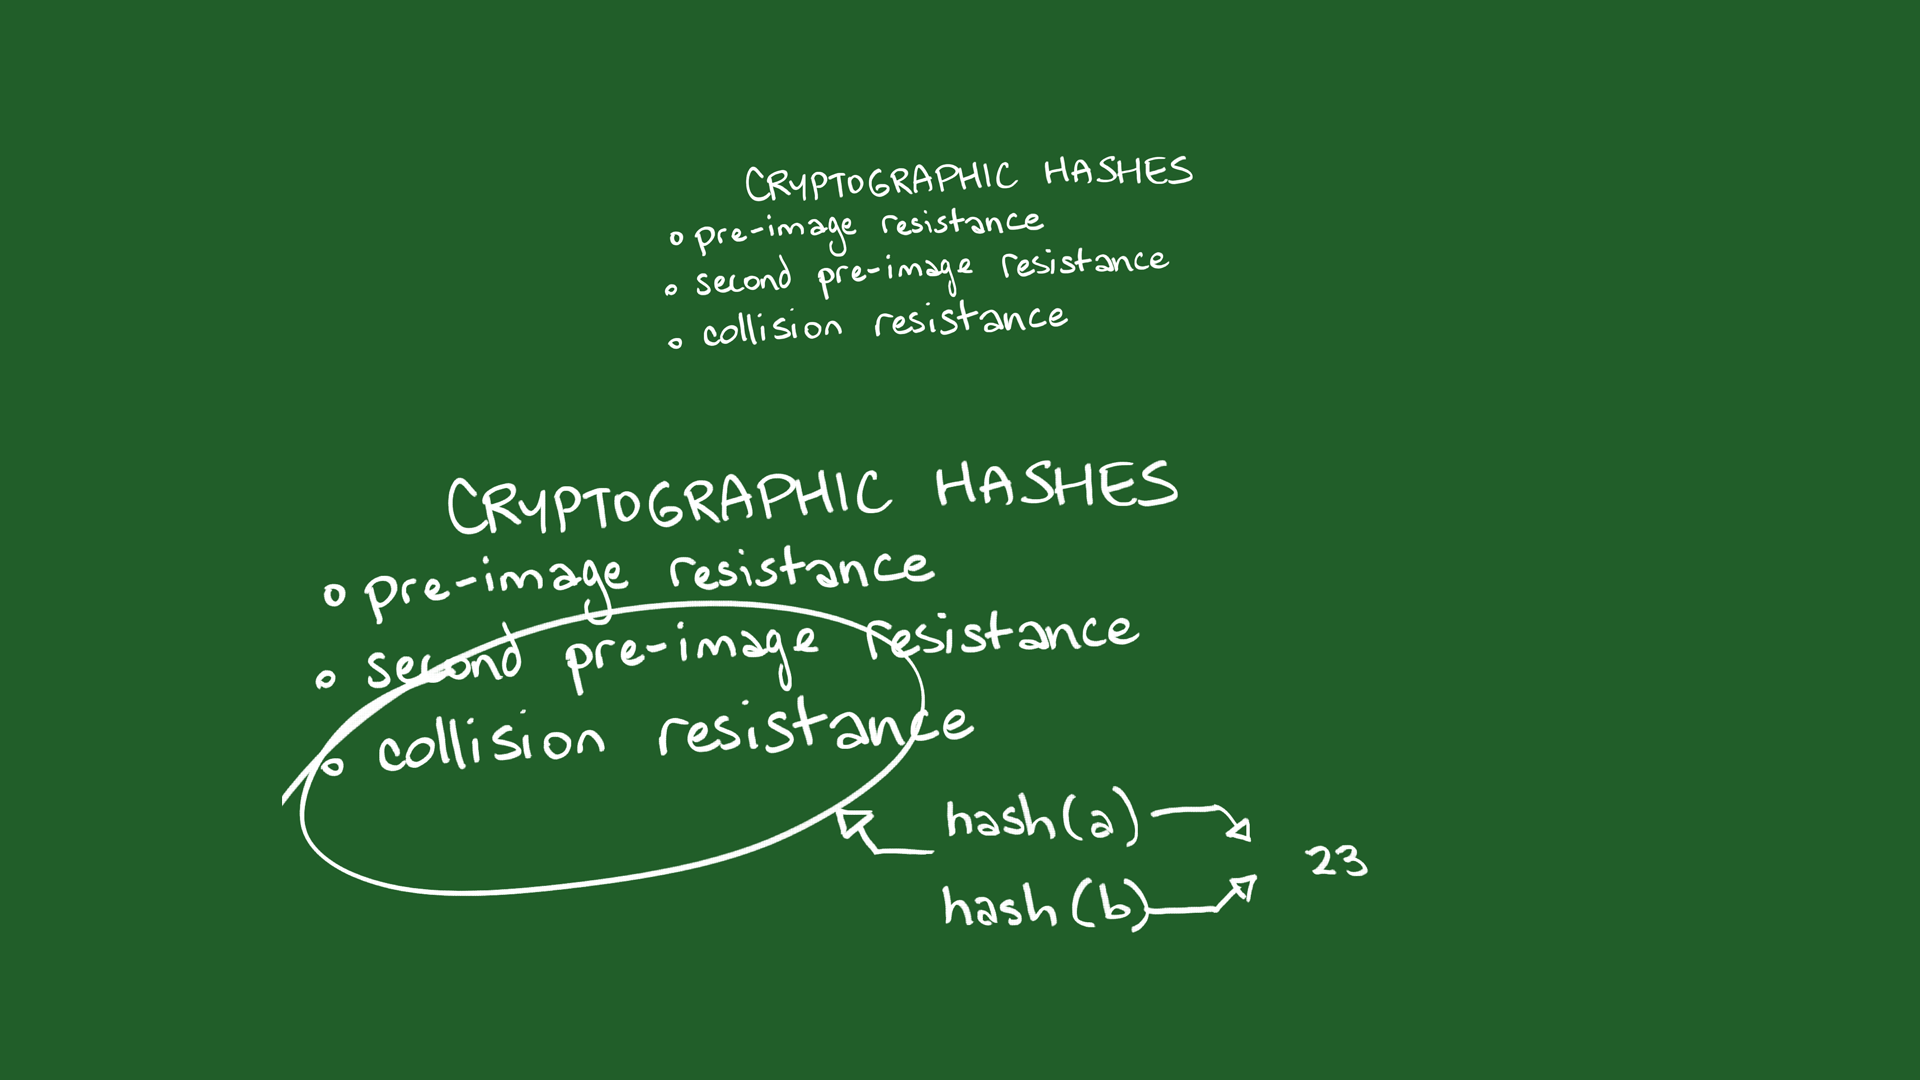 CRYPTOGRAPHIC HASHES
• pre-image resistance
• second pre-image resistance
• collision resistance
CRYPTOGRAPHIC HASHES
• pre-image resistance
• second pre-image resistance
• collision resistance
hash(a)
23
hash(b)